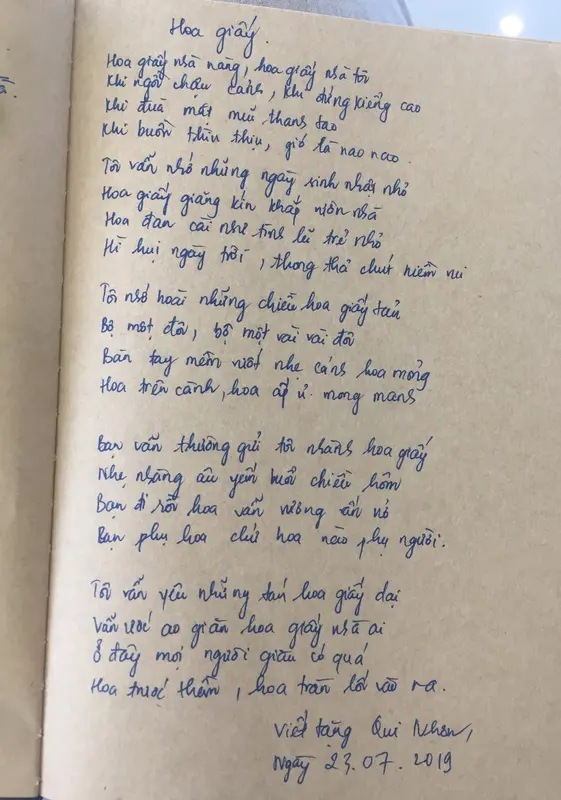 Hoa giấy.
Hoa giấy nhà nàng, hoa giấy nhà tôi
Khi ngồi chậu cảnh, khi đứng kiểng cao
Khi đùa mát mẻ thanh tao
Khi buồn thìu thịu, gió là nao nao.
Tôi vẫn nhớ những ngày sinh nhật nhỏ
Hoa giấy giăng kín khắp hiên nhà
Hoa đan cài như tình lũ trẻ nhỏ
Hì hụi ngày trời, thong thả chút niềm vui
Tôi nhớ hoài những chiều hoa giấy tản
Bộ một đôi, bộ một vài vài đôi
Bàn tay mềm vuốt nhẹ cánh hoa mỏng
Hoa trên cành, hoa ấp ủ mong manh
Bạn vẫn thường gửi tôi nhành hoa giấy
Nhẹ nhàng âu yếm buổi chiều hôm
Bạn đi rồi hoa vẫn vương vấn nó
Bạn phụ hoa chứ hoa nào phụ người.
Tôi vẫn yêu những tán hoa giấy dại
Vẫn ước ao giàn hoa giấy nhà ai
Ở đây mọi người giàu có quá
Hoa trước thềm, hoa tràn lối vào ra.
Viết tặng Qui Nhơn,
Ngày 23.07.2019